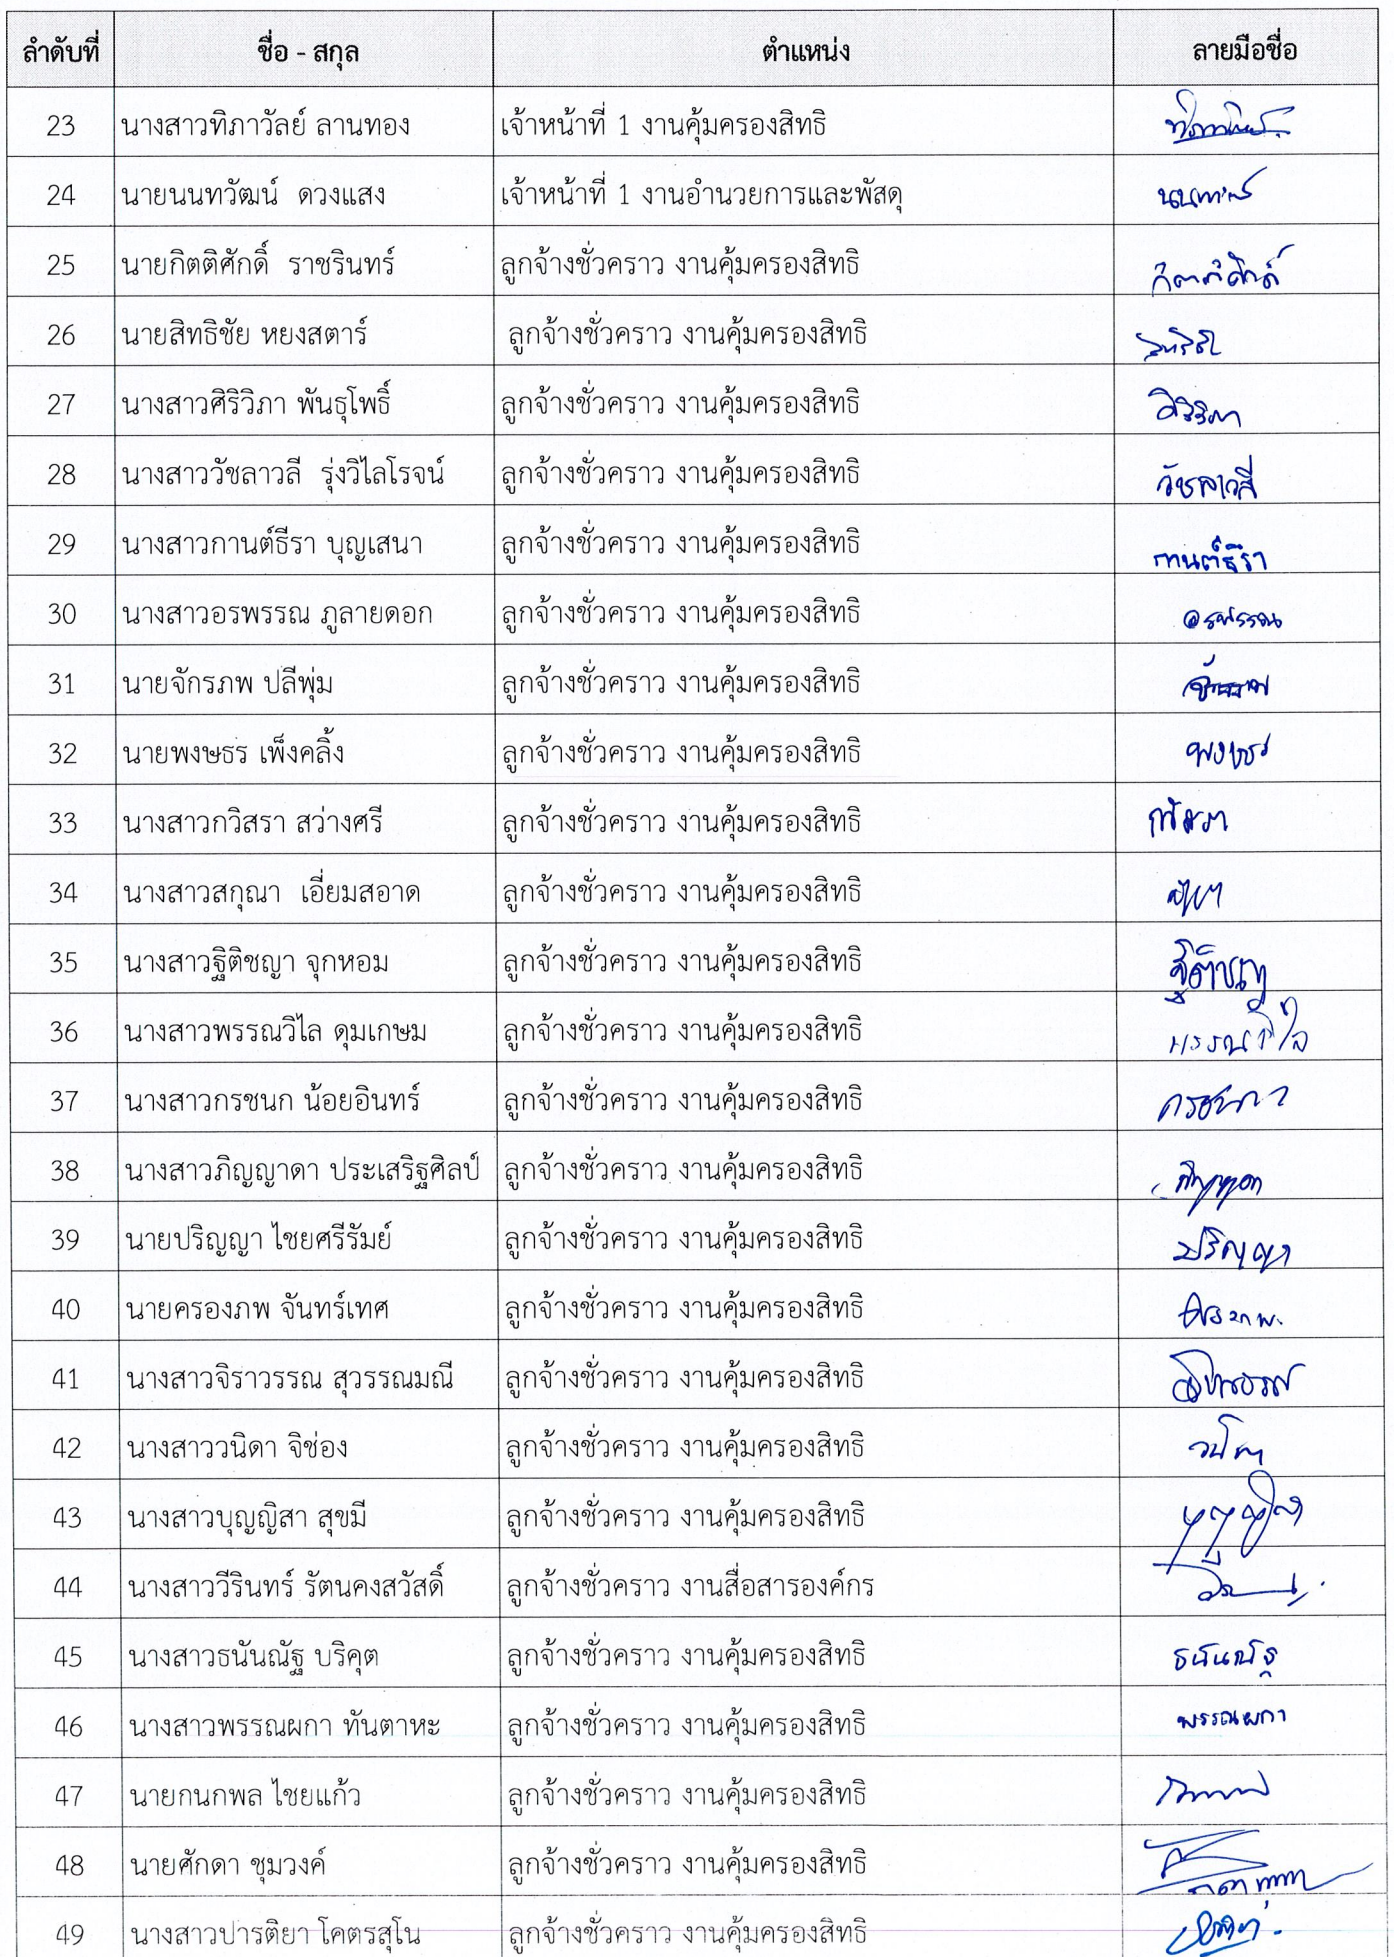 ลำดับที่ ชื่อ - สกุล ตำแหน่ง ลายมือชื่อ
23 นางสาวทิภาวัลย์ ลานทอง เจ้าหน้าที่ 1 งานคุ้มครองสิทธิ
24 นายนนทวัฒน์ ดวงแสง เจ้าหน้าที่ 1 งานอำนวยการและพัสดุ
25 นายกิตติศักดิ์ ราชรินทร์ ลูกจ้างชั่วคราว งานคุ้มครองสิทธิ กิตติศักดิ์
26 นายสิทธิชัย หยงสตาร์ ลูกจ้างชั่วคราว งานคุ้มครองสิทธิ
27 นางสาวศิริวิภา พันธุโพธิ์ ลูกจ้างชั่วคราว งานคุ้มครองสิทธิ ศิริวิภา
28 นางสาววัชลาวลี รุ่งวิไลโรจน์ ลูกจ้างชั่วคราว งานคุ้มครองสิทธิ วัชลาวลี
29 นางสาวกานต์ธีรา บุญเสนา ลูกจ้างชั่วคราว งานคุ้มครองสิทธิ กานต์ธีรา
30 นางสาวอรพรรณ ภูลายดอก ลูกจ้างชั่วคราว งานคุ้มครองสิทธิ อรพรรณ
31 นายจักรภพ ปลีพุ่ม ลูกจ้างชั่วคราว งานคุ้มครองสิทธิ
32 นายพงษธร เพ็งคลิ้ง ลูกจ้างชั่วคราว งานคุ้มครองสิทธิ พงษธร
33 นางสาวกวิสรา สว่างศรี ลูกจ้างชั่วคราว งานคุ้มครองสิทธิ กวิสรา
34 นางสาวสกุณา เอี่ยมสอาด ลูกจ้างชั่วคราว งานคุ้มครองสิทธิ
35 นางสาวฐิติชญา จุกหอม ลูกจ้างชั่วคราว งานคุ้มครองสิทธิ ฐิติชญา
36 นางสาวพรรณวิไล ดุมเกษม ลูกจ้างชั่วคราว งานคุ้มครองสิทธิ พรรณวิไล
37 นางสาวกรชนก น้อยอินทร์ ลูกจ้างชั่วคราว งานคุ้มครองสิทธิ กรชนก
38 นางสาวภิญญาดา ประเสริฐศิลป์ ลูกจ้างชั่วคราว งานคุ้มครองสิทธิ
39 นายปริญญา ไชยศรีรัมย์ ลูกจ้างชั่วคราว งานคุ้มครองสิทธิ ปริญญา
40 นายครองภพ จันทร์เทศ ลูกจ้างชั่วคราว งานคุ้มครองสิทธิ
41 นางสาวจิราวรรณ สุวรรณมณี ลูกจ้างชั่วคราว งานคุ้มครองสิทธิ
42 นางสาววนิดา จิช่อง ลูกจ้างชั่วคราว งานคุ้มครองสิทธิ วนิดา
43 นางสาวบุญญิสา สุขมี ลูกจ้างชั่วคราว งานคุ้มครองสิทธิ บุญญิสา
44 นางสาววีรินทร์ รัตนคงสวัสดิ์ ลูกจ้างชั่วคราว งานสื่อสารองค์กร
45 นางสาวธนันณัฐ บริคุต ลูกจ้างชั่วคราว งานคุ้มครองสิทธิ ธนันณัฐ
46 นางสาวพรรณผกา ทันตาหะ ลูกจ้างชั่วคราว งานคุ้มครองสิทธิ พรรณผกา
47 นายกนกพล ไชยแก้ว ลูกจ้างชั่วคราว งานคุ้มครองสิทธิ
48 นายศักดา ชุมวงค์ ลูกจ้างชั่วคราว งานคุ้มครองสิทธิ
49 นางสาวปารติยา โคตรสุโน ลูกจ้างชั่วคราว งานคุ้มครองสิทธิ